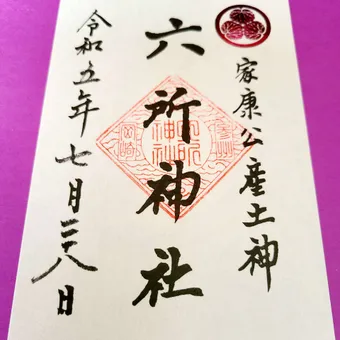 家康公産土神
六所神社
令和五年七月二十八日
岡崎
六所神社